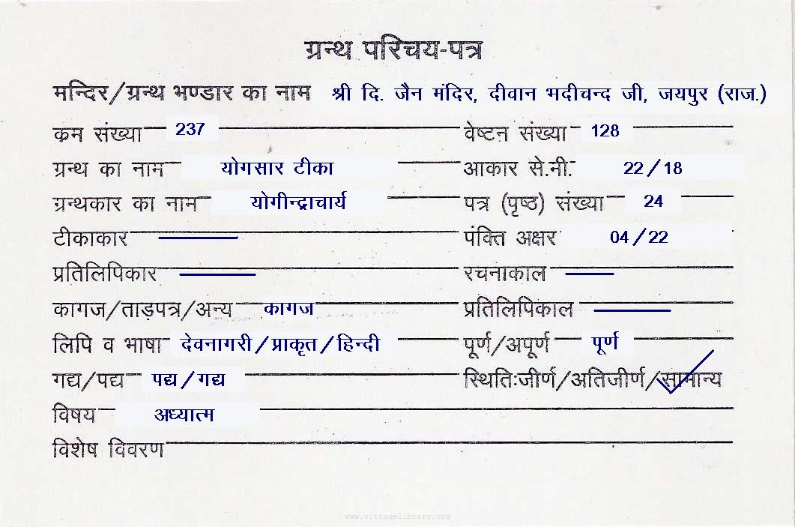 ग्रन्थ परिचय-पत्र
मन्दिर/ग्रन्थ भण्डार का नाम श्री दि. जैन मंदिर, दीवान भदीचन्द जी, जयपुर (राज.)
कम संख्या 237 वेष्टन संख्या 128
ग्रन्थ का नाम योगसार टीका आकार से.मी. 22/18
ग्रन्थकार का नाम योगीन्द्राचार्य पत्र (पृष्ठ) संख्या 24
टीकाकार — पंक्ति अक्षर 04/22
प्रतिलिपिकार — रचनाकाल —
कागज/ताड़पत्र/अन्य कागज प्रतिलिपिकाल —
लिपि व भाषा देवनागरी/प्राकृत/हिन्दी पूर्ण/अपूर्ण पूर्ण
गद्य/पद्य पद्य/गद्य स्थितिःजीर्ण/अतिजीर्ण/सामान्य
विषय अध्यात्म
विशेष विवरण